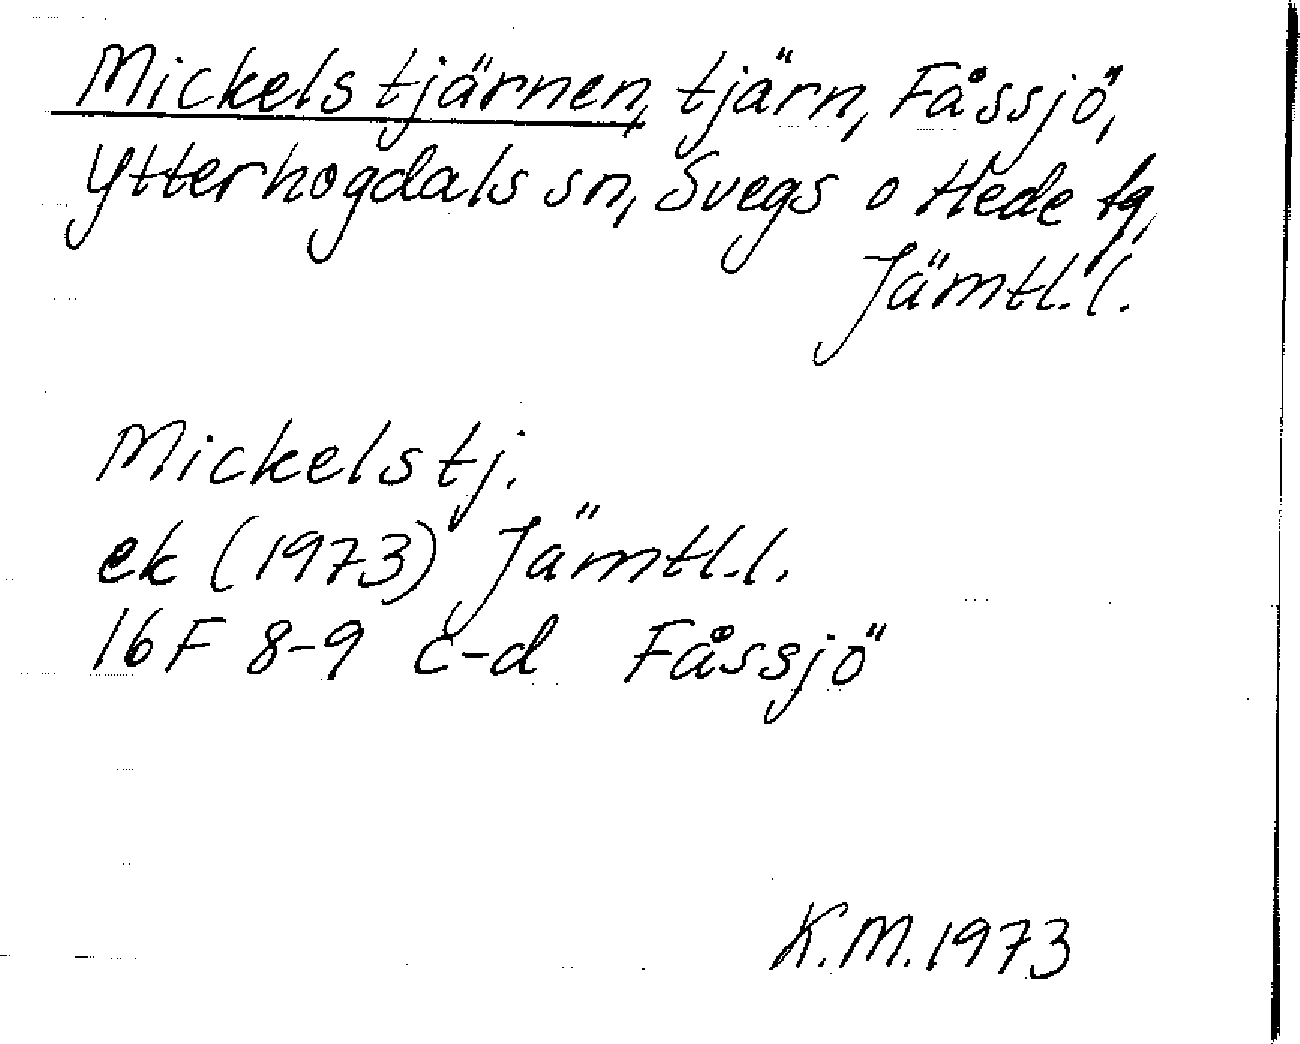 Mickelstjärnen, tjärn, Fåssjö,
Ytterhogdals sn, Svegs o Hede tg,
Jämtl. l.
Mickelstj.
ek (1973) Jämtl. l.
16F 8-9 c-d Fåssjö
K.M. 1973